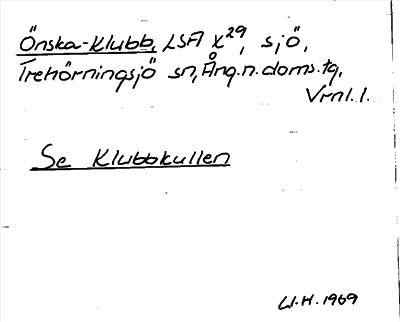 Önska-Klubb, LSA X29, sjö,
Trehörningsjö sn, Ång.n.doms.tg,
Vrnl.l.
Se Klubbkullen
W.H. 1969